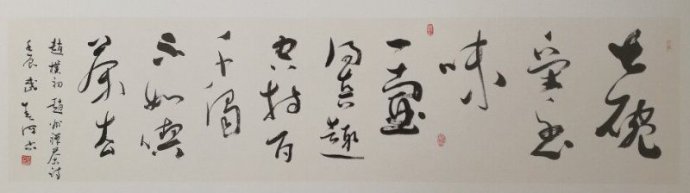 七碗
受至
味
一壺
得真趣
空持百
千偈
不如喫
茶去
趙樸初題禅茶诗
壬辰